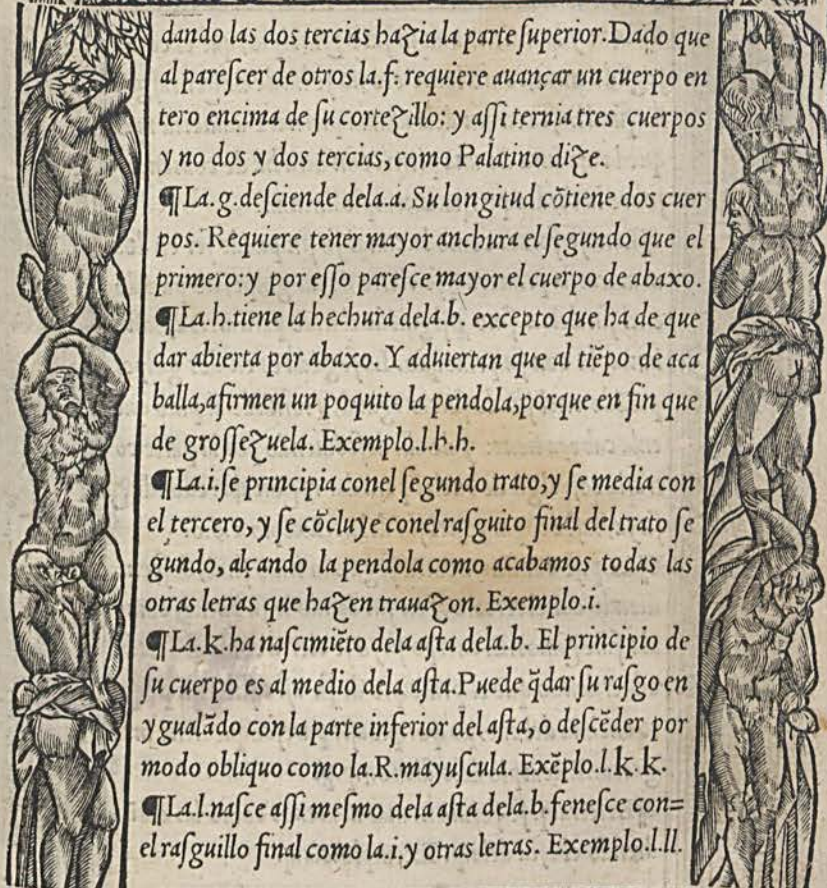 dando las dos tercias hazia la parte ſuperior. Dado que
al pareſcer de otros la.f. requiere auançar un cuerpo en
tero encima de ſu cortezillo: y aſſi ternia tres cuerpos
y no dos y dos tercias, como Palatino dize.
¶La.g.deſciende dela.a. Su longitud cõtiene dos cuer
pos. Requiere tener mayor anchura el ſegundo que el
primero: y por eſſo pareſce mayor el cuerpo de abaxo.
¶La.h.tiene la hechura dela.b. excepto que ha de que
dar abierta por abaxo. Y aduiertan que al tiẽpo de aca
balla, afirmen un poquito la pendola, porque en fin que
de groſſezuela. Exemplo.l.h.h.
¶La.i.ſe principia conel ſegundo trato, y ſe media con
el tercero, y ſe cõcluye conel raſguito final del trato ſe
gundo, alçando la pendola como acabamos todas las
otras letras que hazen trauazon. Exemplo.i.
¶La.k.ha naſcimiẽto dela aſta dela.b. El principio de
ſu cuerpo es al medio dela aſta. Puede q̃dar ſu raſgo en
ygualãdo con la parte inferior del aſta, o deſcẽder por
modo obliquo como la.R.mayuſcula. Exẽplo.l.k.k.
¶La.l.naſce aſſi meſmo dela aſta dela.b.feneſce con=
el raſguillo final como la.i.y otras letras. Exemplo.l.ll.